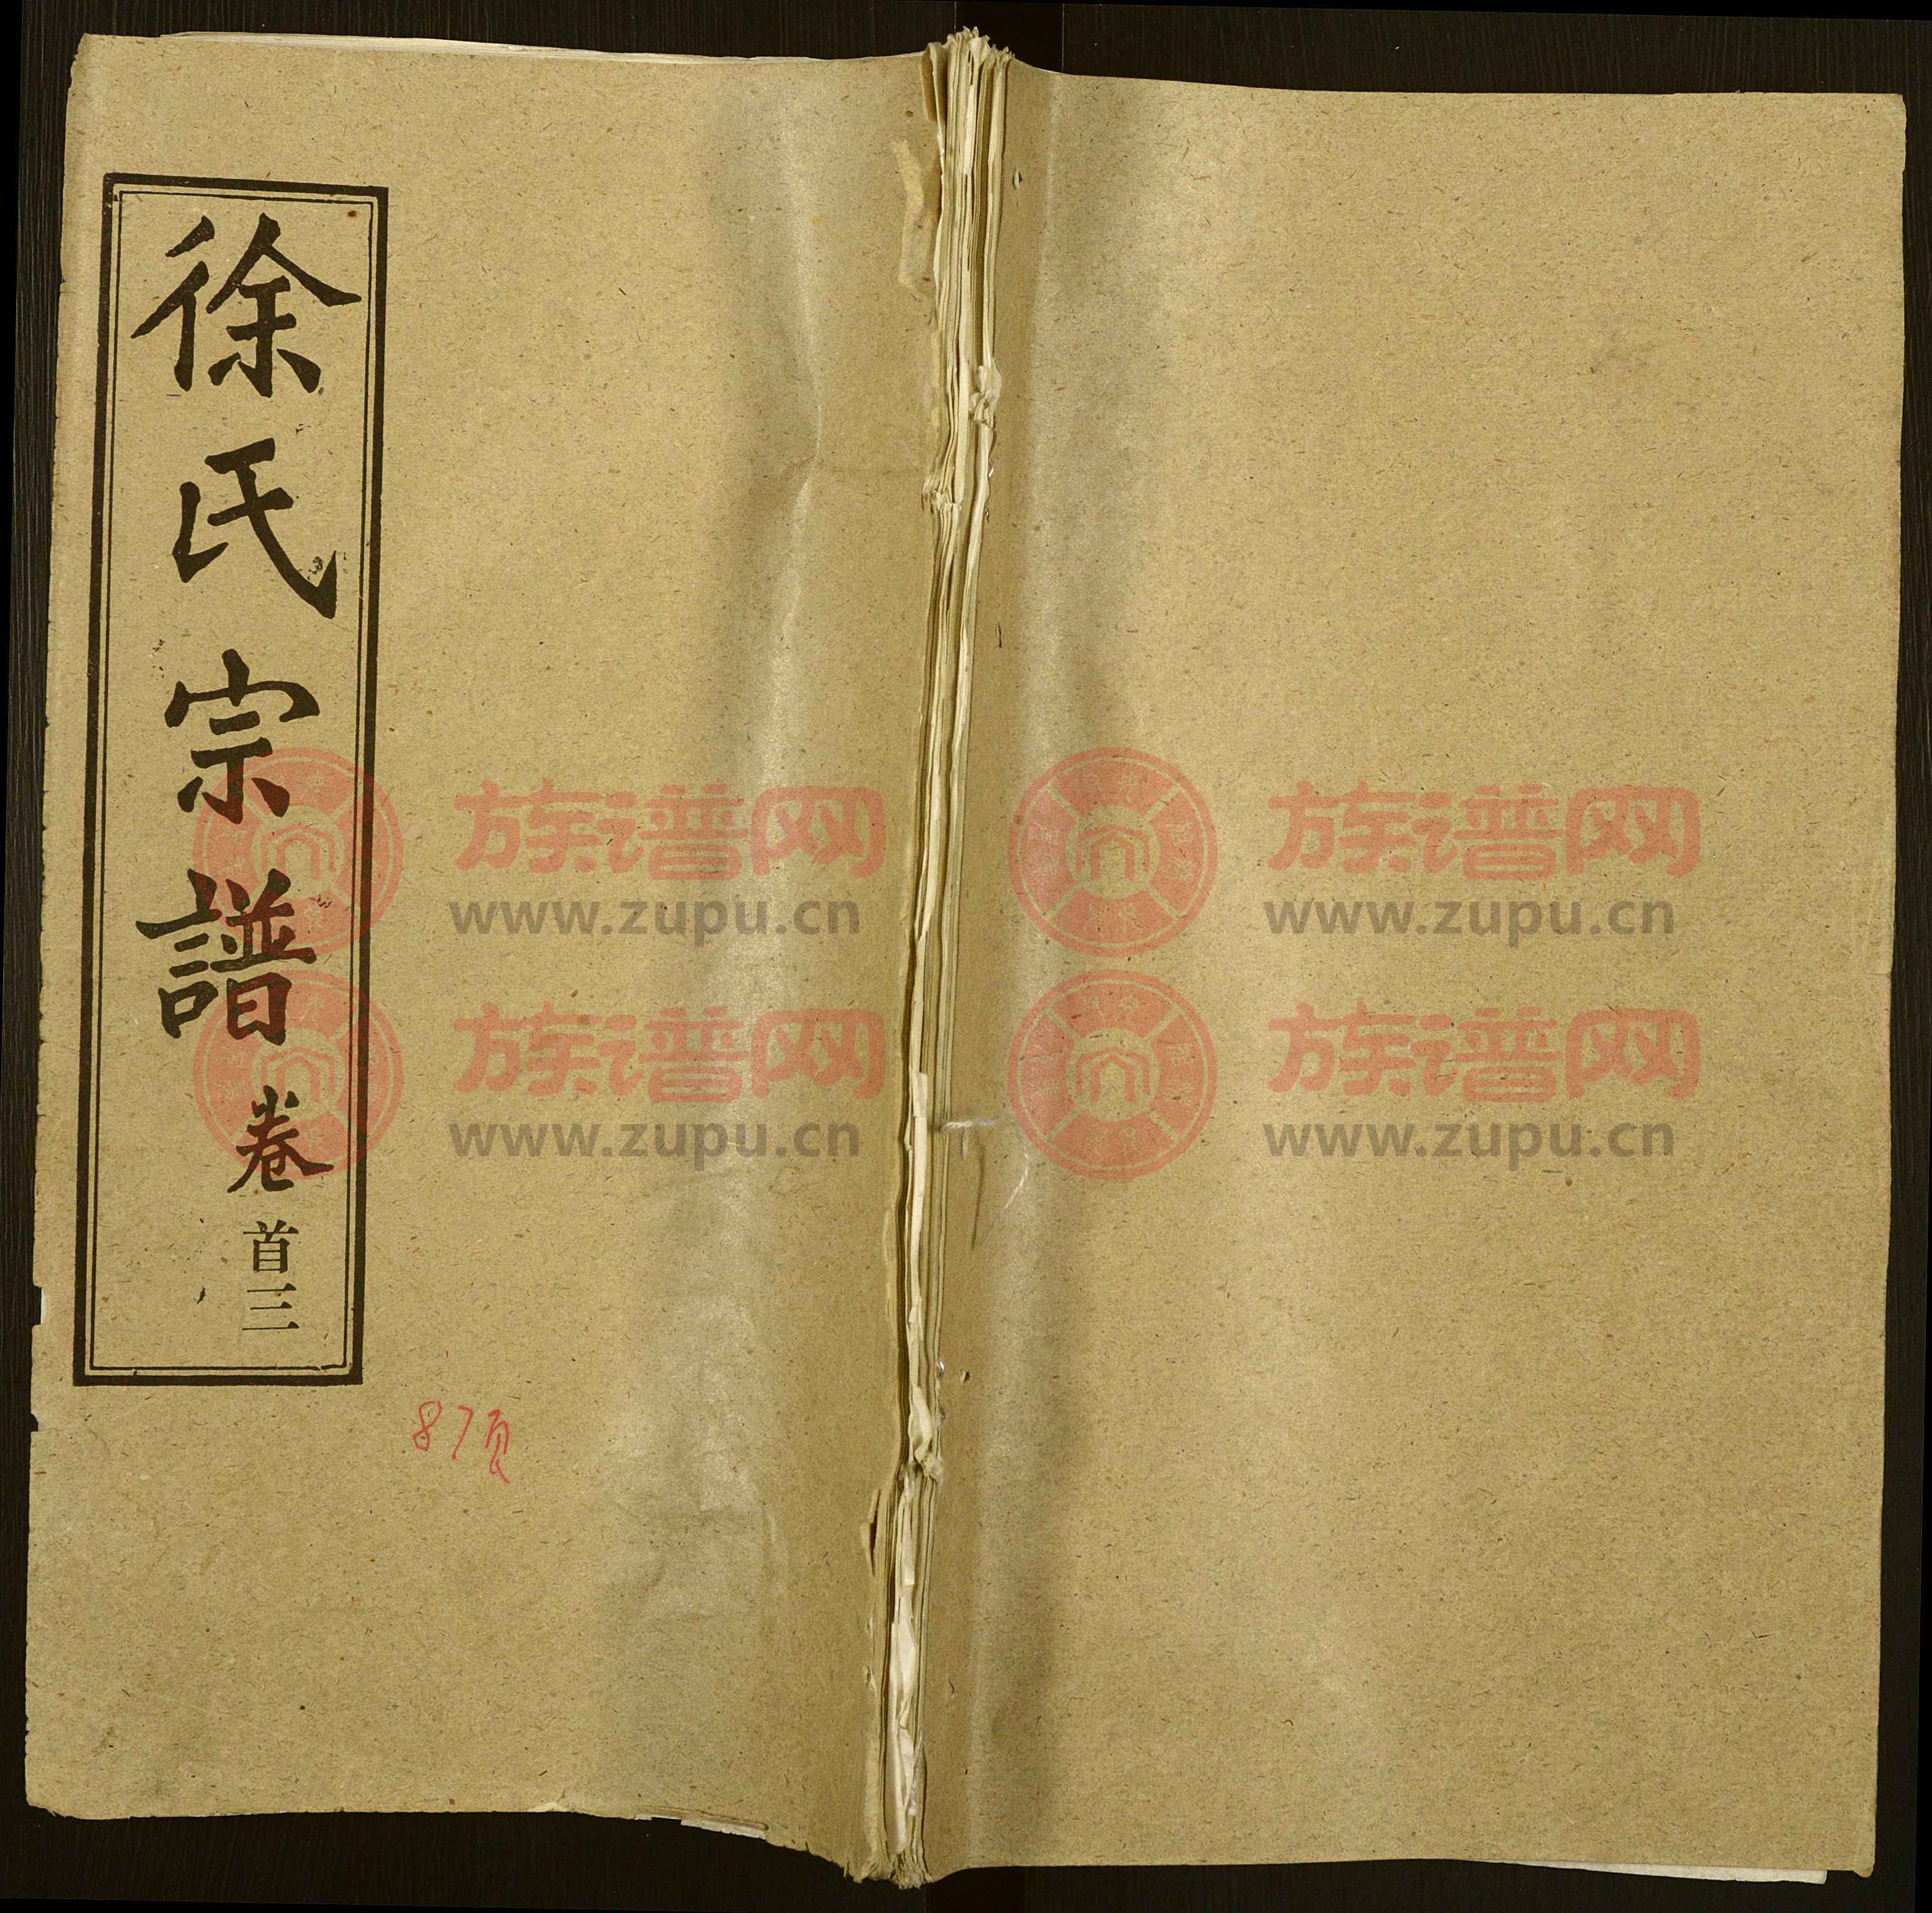 徐氏宗譜 卷首三
87页
族谱网 族谱网
www.zupu.cn www.zupu.cn
族谱网 族谱网
www.zupu.cn www.zupu.cn